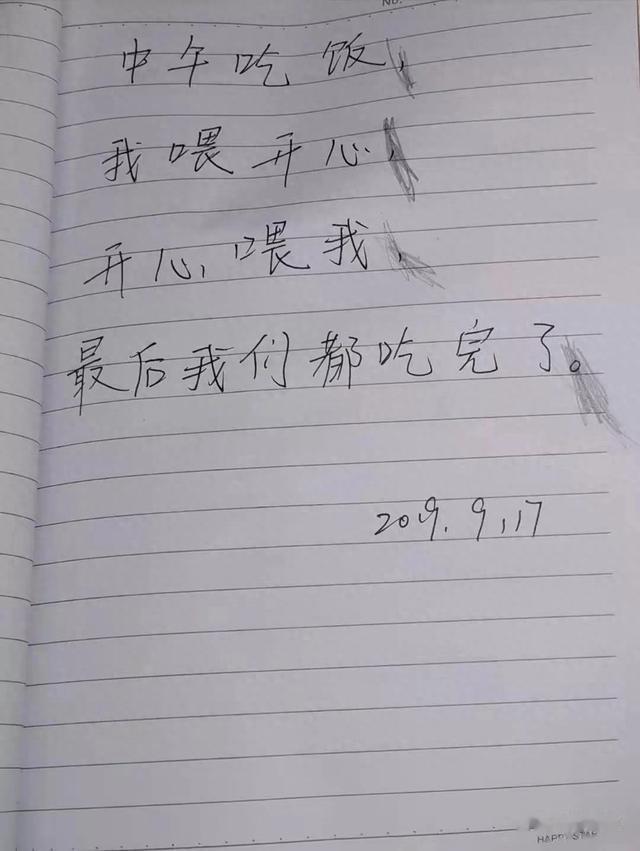 No.
中午吃饭,
我喂开心,
开心喂我,
最后我们都吃完了。
2019.9.17
HAPPY STAR